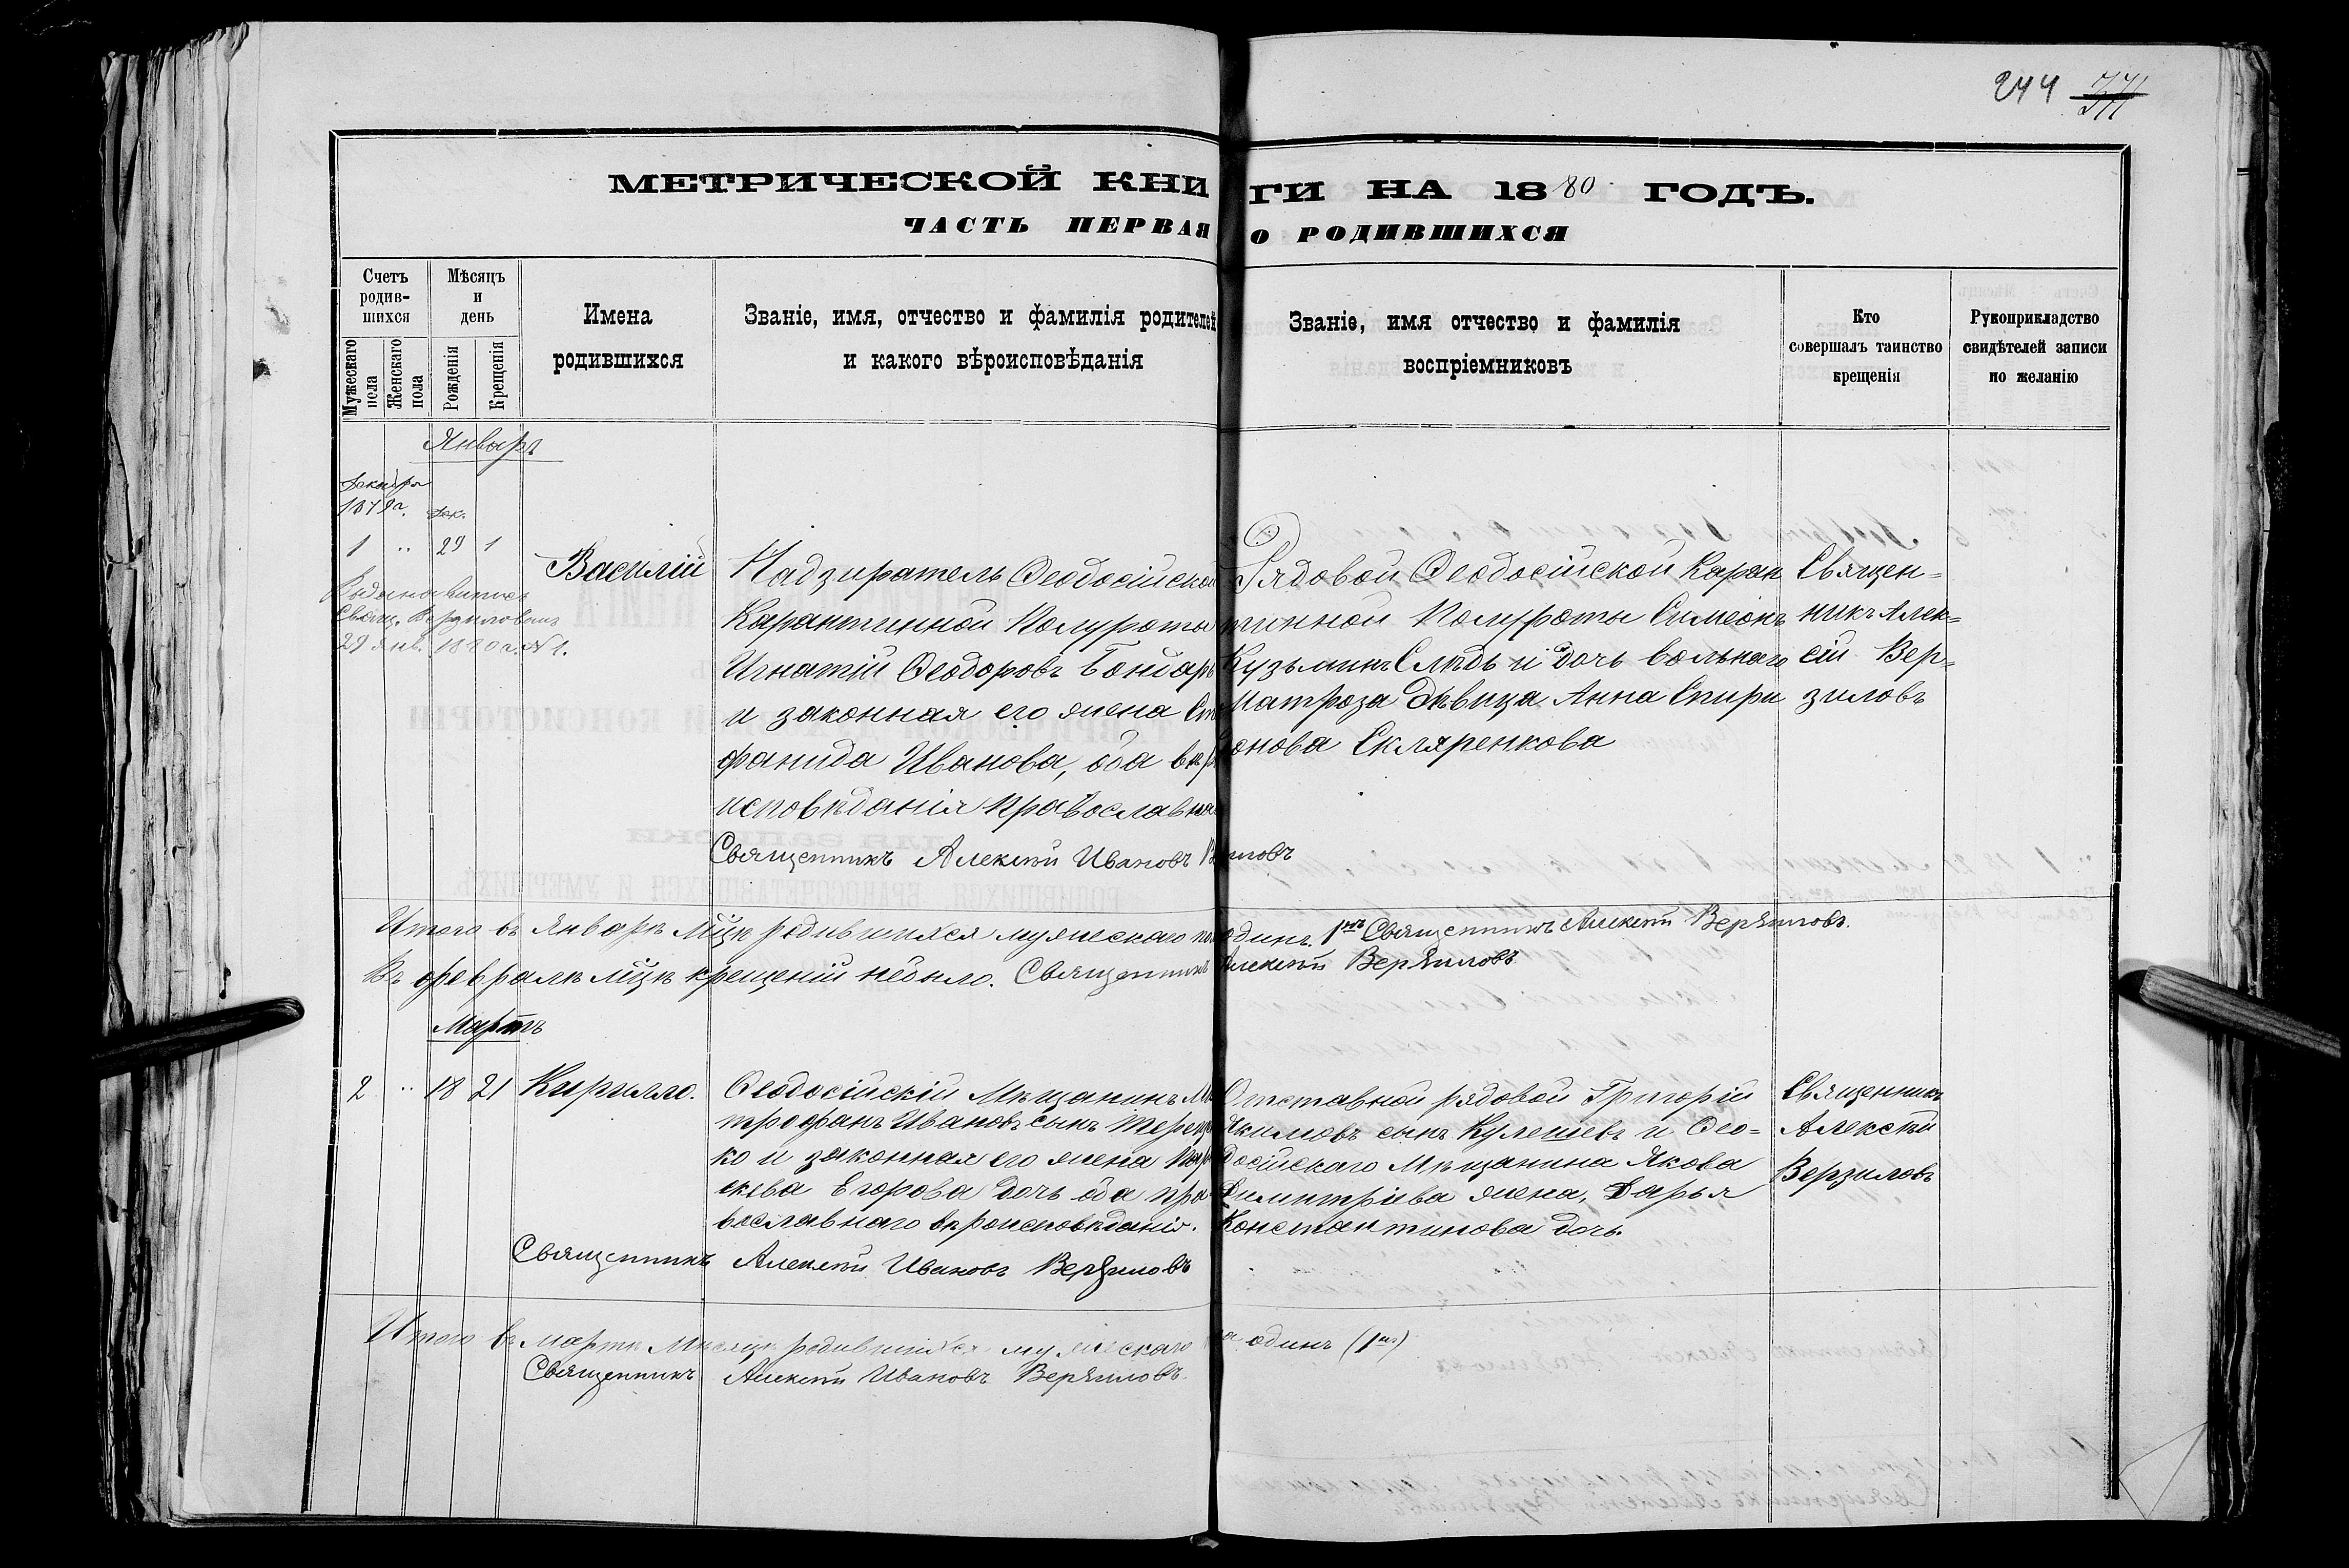 244 371
МЕТРИЧЕСКОЙ КНИГИ НА 1880 ГОДЪ.
ЧАСТЬ ПЕРВАЯ О РОДИВШИХСЯ
Счетъ родив- шихся
Мужескаго пола
Женскаго пола
Мѣсяцъ и день
Рожденія
Крещенія
Имена родившихся
Званіе, имя, отчество и фамилія родителей
и какого вѣроисповѣданія
Званіе, имя отчество и фамилія
воспріемниковъ
Кто
совершалъ таинство
крещенія
Рукоприкладство
свидѣтелей записи
по желанію
Январь
Декабря
1879 г. Дек.
1 " 29 1
Выдана выпись
Свящ. Верзиловымъ
29 Янв. 1880 г. № 1.
Василій
Надзиратель Ѳеодосійской
Карантинной Полуроты
Игнатій Ѳеодоровъ Бондарь
и законная его жена Сте
фанида Иванова, оба вѣро
исповѣданія православнаго
Священникъ Алексѣй Ивановъ Верзиловъ
Рядовой Ѳеодосійской Каран
тинной Полуроты Симеонъ
Кузьминъ Слѣдь и дочь вольнаго
Матроза дѣвица Анна Спири
онова Скляренкова
Священ=
никъ Алек=
сій Вер=
зиловъ
Итого въ Январѣ М̃цѣ родившихся мужескаго пола одинъ. 1нъ Священникъ Алексѣй Верзиловъ.
Въ февралѣ м̃цѣ крещеній небыло. Священникъ Алексѣй Верзиловъ
Мартъ
2 " 18 21 Кирилло.
Ѳеодосійскій Мѣщанинъ Ми
трофанъ Ивановъ сынъ Терещен
ко и законная его жена Пара
скева Егорова дочь оба пра
вославнаго вѣроисповѣданія.
Священникъ Алексѣй Ивановъ Верзиловъ
Отставной рядовой Григорій
Якимовъ сынъ Кулешевъ и Ѳео=
досійскаго Мѣщанина Якова
Димитріева жена, Дарья
Константинова дочь.
Священникъ
Алексѣй
Верзиловъ
Итого въ мартѣ Мѣсяцѣ родившійся мужескаго пола одинъ (1нъ)
Священникъ Алексѣй Ивановъ Верзиловъ.